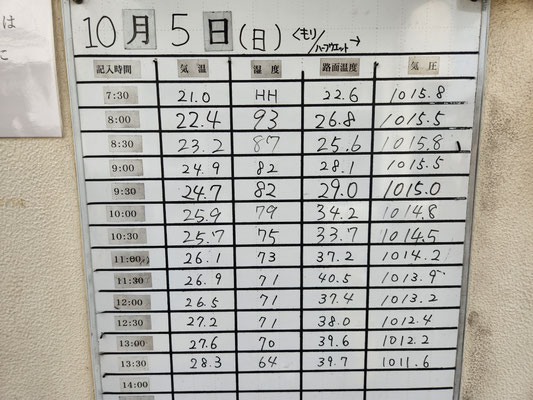 は
に
10月5日(日) くもり
ハーフウエット→
記入時間 気温 湿度 路面温度 気圧
7:30 21.0 HH 22.6 1015.8
8:00 22.4 93 26.8 1015.5
8:30 23.2 87 25.6 1015.8
9:00 24.9 82 28.1 1015.5
9:30 24.7 82 29.0 1015.0
10:00 25.9 79 34.2 1014.8
10:30 25.7 75 33.7 1014.5
11:00 26.1 73 37.2 1014.2
11:30 26.9 71 40.5 1013.9
12:00 26.5 71 37.4 1013.2
12:30 27.2 71 38.0 1012.4
13:00 27.6 70 39.6 1012.2
13:30 28.3 64 39.7 1011.6
14:00